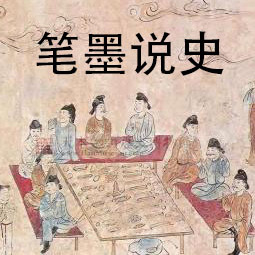 笔墨说史